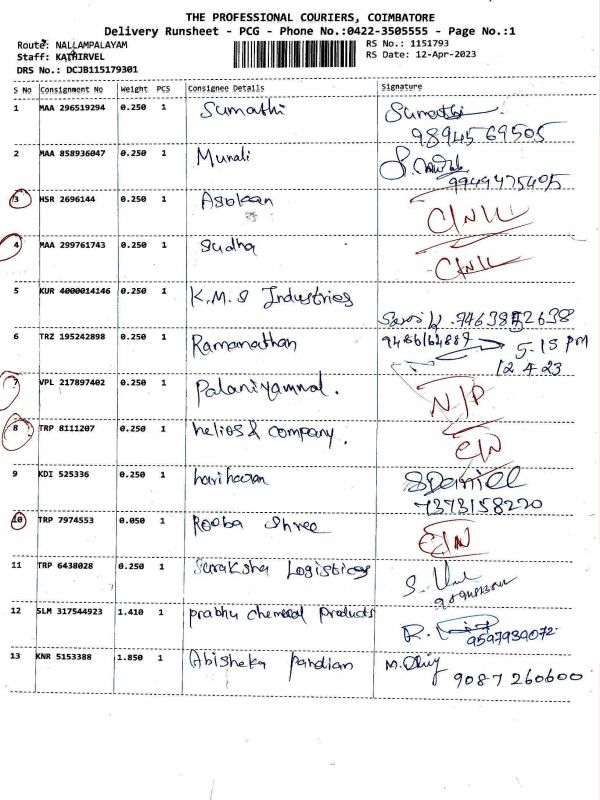 THE PROFESSIONAL COURIERS, COIMBATORE
Delivery Runsheet - PCG - Phone No.:0422-3505555 - Page No.:1
Route: NALLAMPALAYAM RS No.: 1151793
Staff: KATHIRVEL RS Date: 12-Apr-2023
DRS No.: DCJB115179301
S No Consignment No Weight PCS Consignee Details Signature
1 MAA 296519294 0.250 1 Sumathi Sumathi
9894569505
2 MAA 858936047 0.250 1 Murali
9949475405
3 HSR 2696144 0.250 1 Asokan
4 MAA 299761743 0.250 1 Sudha
5 KUR 4000014146 0.250 1 K.M.S Industries
6 TRZ 195242898 0.250 1 Ramanathan 5.15 PM
12 4 23
7 VPL 217897402 0.250 1 Palaniyammal. N/P
8 TRP 8111207 0.250 1 helios & company.
9 KDI 525336 0.250 1 hariharan SDaniel
7373158220
10 TRP 7974553 0.050 1 Rooba Shree
11 TRP 6438028 0.250 1 Suraksha Logistics
12 SLM 317544923 1.410 1 prabhu chemical Products R.
9597939072
13 KNR 5153388 1.850 1 Abisheka Pandian
9087260600